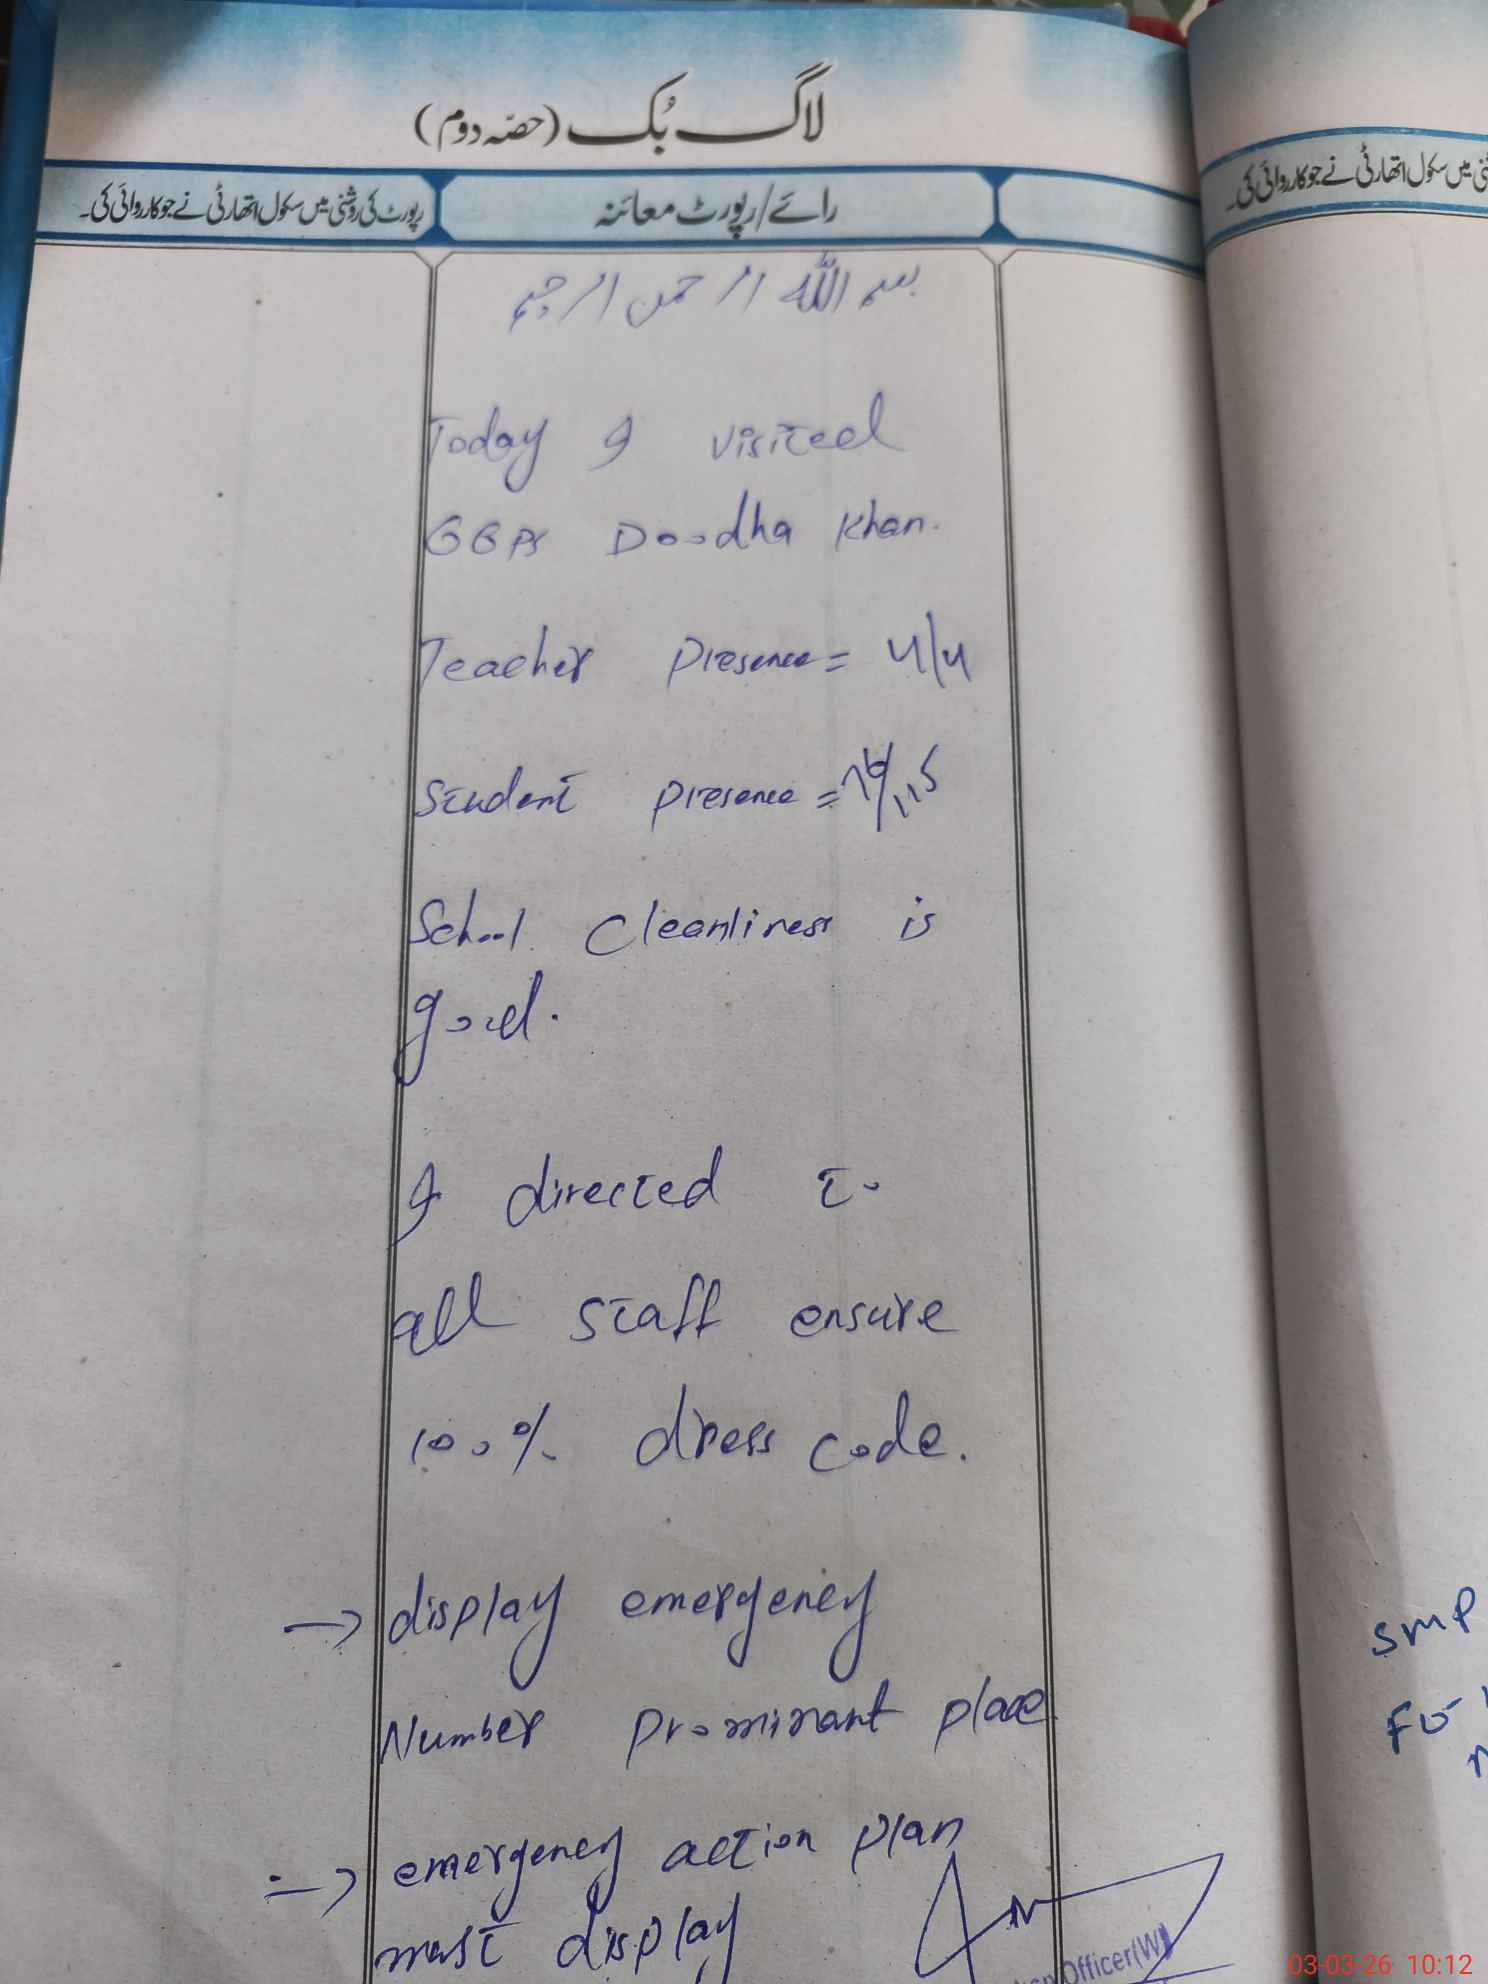 لاگ بُک (حصّہ دوم)
رائے/رپورٹ معائنہ
رپورٹ کی روشنی میں سکول اتھارٹی نے جو کارروائی کی۔
بسم اللہ الرحمن الرحیم
Today I visited
GGPS Doodha Khan.
Teacher Presence = 4/4
Student Presence = 76/115
School Cleanliness is
good.
I directed to
all staff ensure
100% dress code.
→ display emergency
Number prominant place
→ emergency action plan
must display
Officer(W)
میں سکول اتھارٹی نے جو کارروائی کی۔
SMP
For
03-03-26 10:12